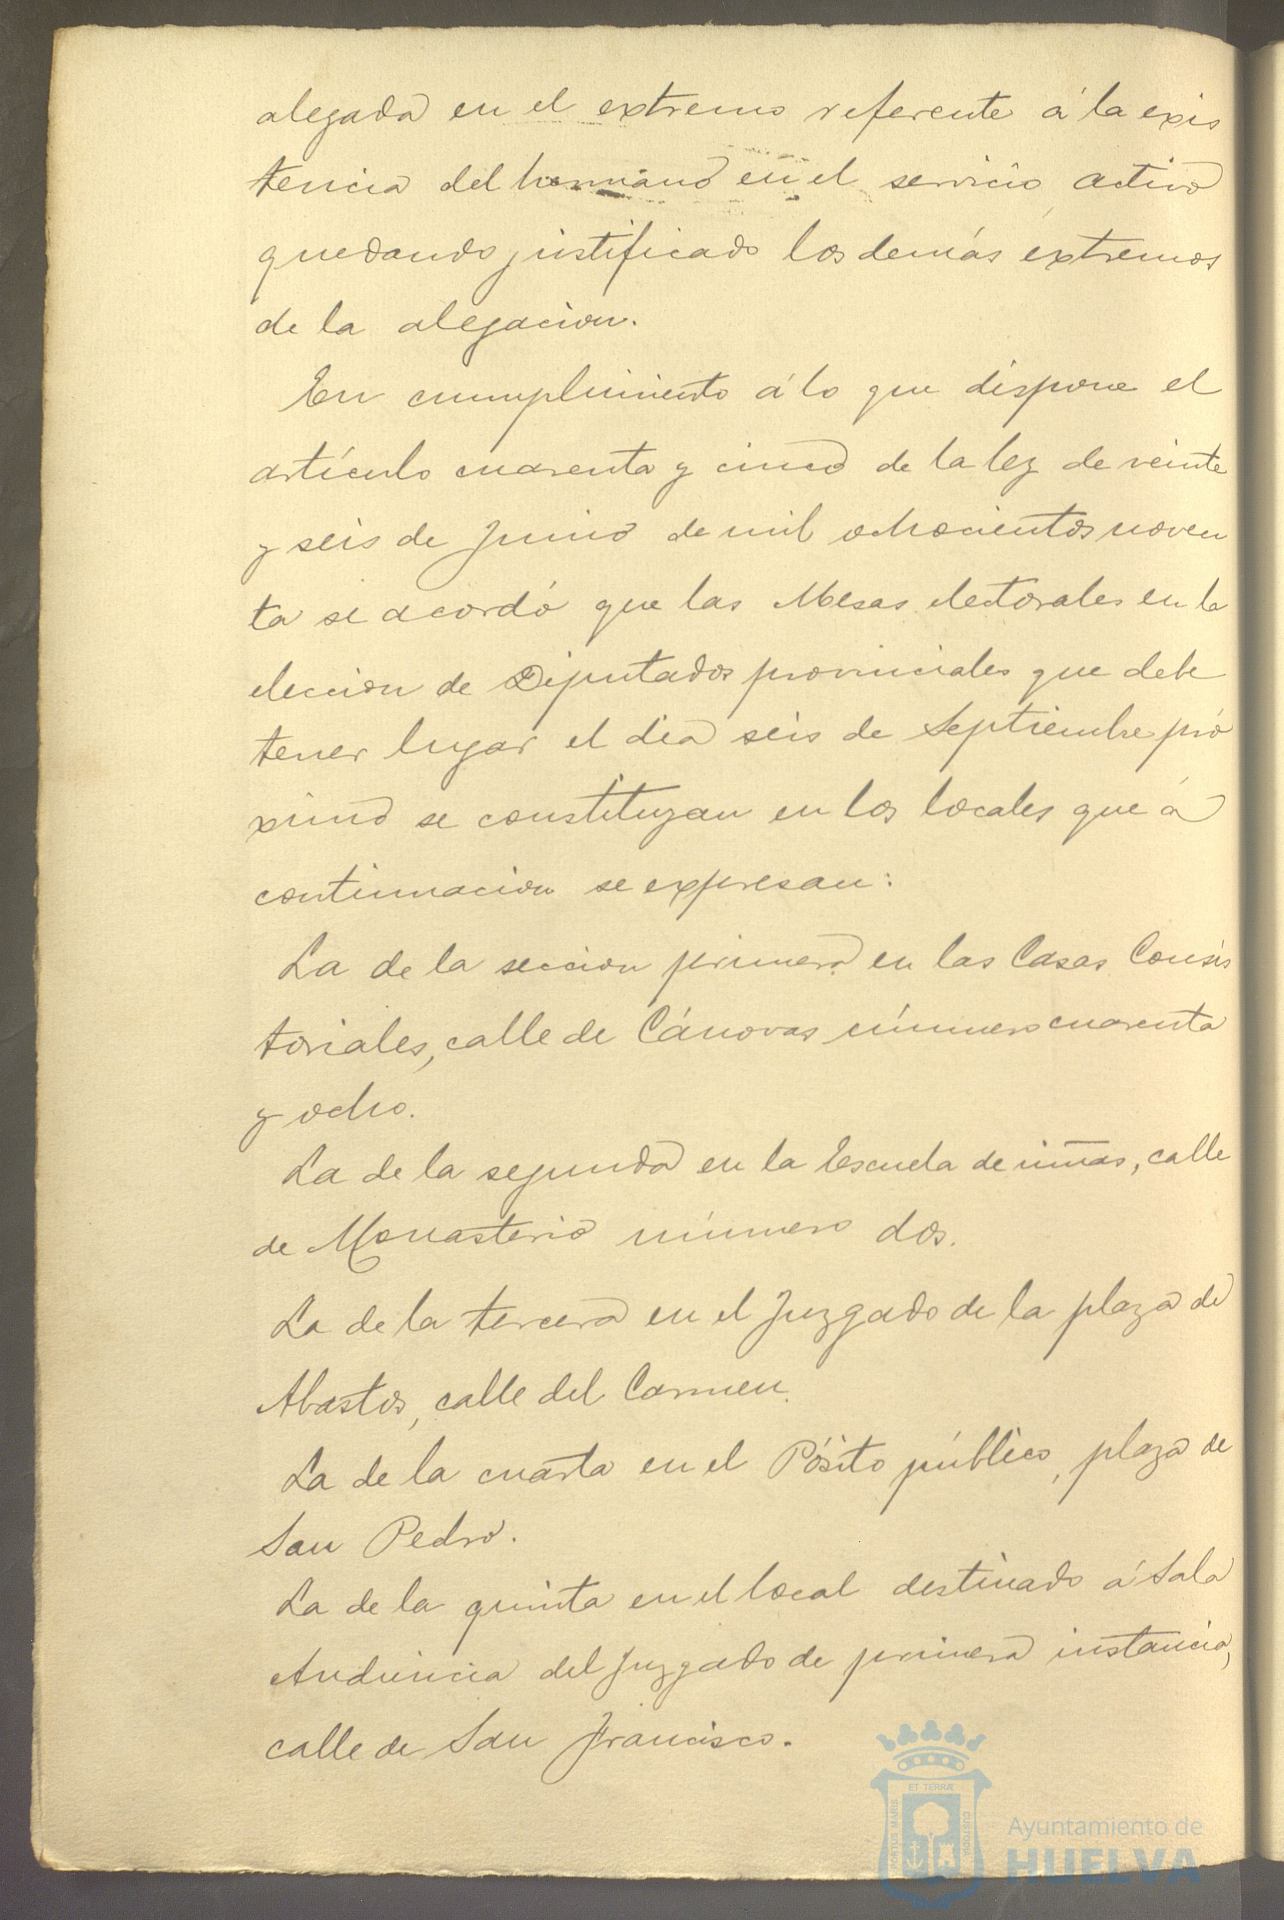 alegada en el extremo referente á la exis
tencia del hermano en el servicio activo
quedando justificado los demás extremos
de la alegacion.
En cumplimiento á lo que dispone el
artículo cuarenta y cinco de la ley de veinte
y seis de Junio de mil ochocientos noven
ta se acordó que las Mesas electorales en la
eleccion de Diputados provinciales que debe
tener lugar el dia seis de Septiembre pró
ximo se constituyan en los locales que á
continuacion se expresan:
La de la seccion primera en las Casas Consis
toriales, calle de Cánovas número cuarenta
y ocho.
La de la segunda en la Escuela de niñas, calle
de Monasterio número dos.
La de la tercera en el Juzgado de la plaza de
Abastos, calle del Carmen.
La de la cuarta en el Pósito público, plaza de
San Pedro.
La de la quinta en el local destinado á Sala
Audiencia del Juzgado de primera instancia,
calle de San Francisco.
ET TERRÆ
PORTUS MARIS
CUSTODIA
Ayuntamiento de
HUELVA